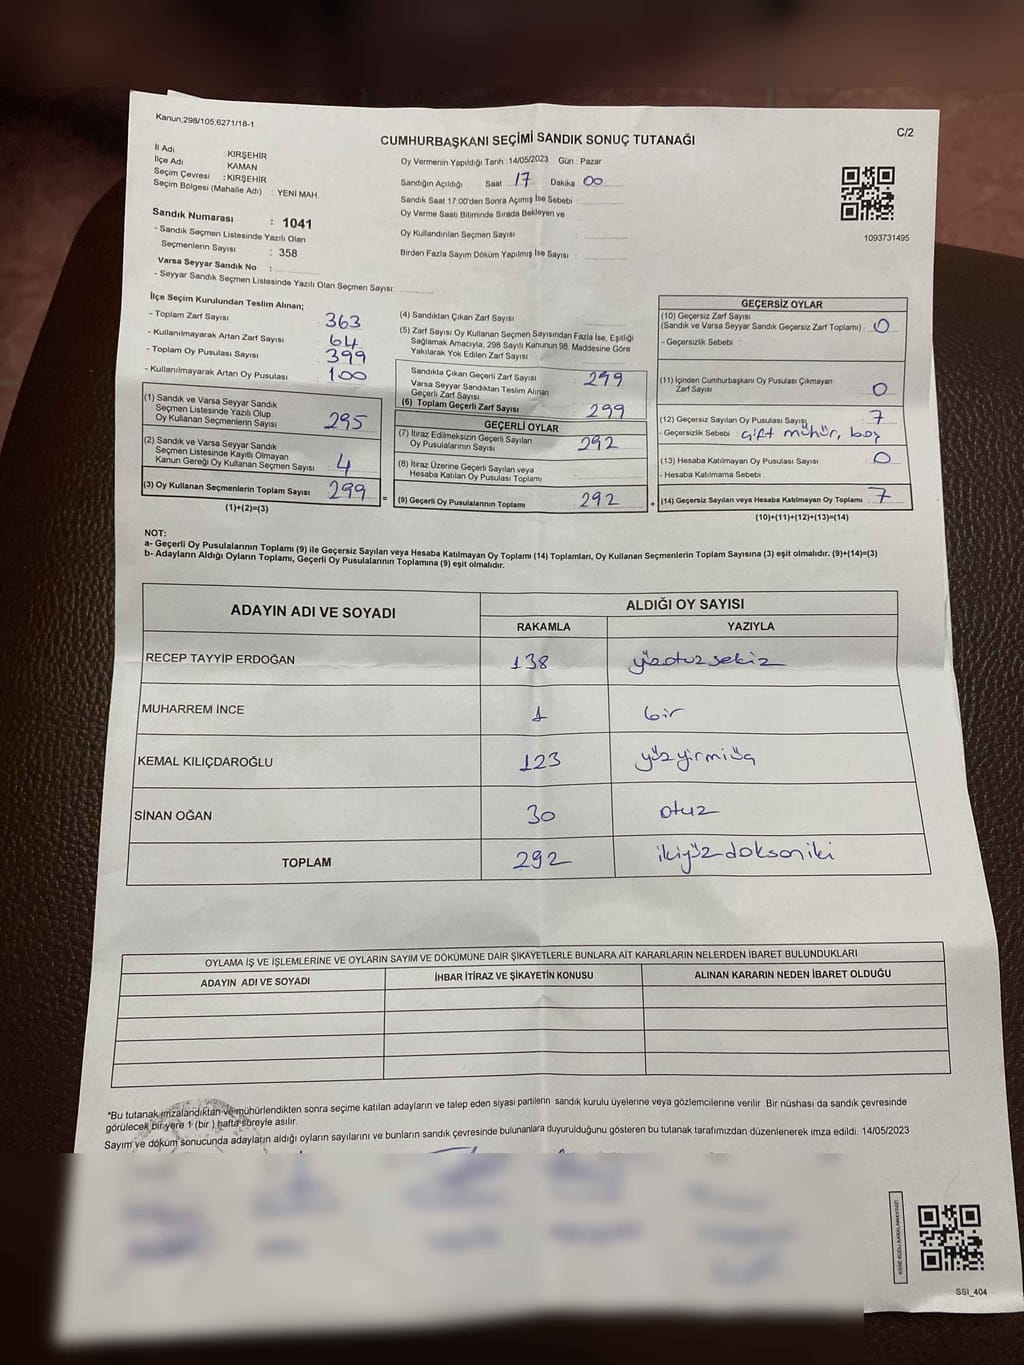 Kanun;298/105,6271/18-1
C/2
CUMHURBAŞKANI SEÇİMİ SANDIK SONUÇ TUTANAĞI
İl Adı : KIRŞEHİR
İlçe Adı : KAMAN
Seçim Çevresi : KIRŞEHİR
Seçim Bölgesi (Mahalle Adı) : YENİ MAH.
Sandık Numarası : 1041
- Sandık Seçmen Listesinde Yazılı Olan
Seçmenlerin Sayısı : 358
Varsa Seyyar Sandık No :
- Seyyar Sandık Seçmen Listesinde Yazılı Olan Seçmen Sayısı:
Oy Vermenin Yapıldığı Tarih :14/05/2023 Gün : Pazar
Sandığın Açıldığı Saat 17 Dakika 00
Sandık Saat 17:00'den Sonra Açımış İse Sebebi :
Oy Verme Saati Bitiminde Sırada Bekleyen ve
Oy Kullandırılan Seçmen Sayısı :
Birden Fazla Sayım Döküm Yapılmış İse Sayısı :
1093731495
İlçe Seçim Kurulundan Teslim Alınan;
- Toplam Zarf Sayısı : 363
- Kullanılmayarak Artan Zarf Sayısı : 64
- Toplam Oy Pusulası Sayısı : 399
- Kullanılmayarak Artan Oy Pusulası : 100
(1) Sandık ve Varsa Seyyar Sandık
Seçmen Listesinde Yazılı Olup
Oy Kullanan Seçmenlerin Sayısı : 295
(2) Sandık ve Varsa Seyyar Sandık
Seçmen Listesinde Kayıtlı Olmayan
Kanun Gereği Oy Kullanan Seçmen Sayısı : 4
(3) Oy Kullanan Seçmenlerin Toplam Sayısı : 299
(1)+(2)=(3)
=
(4) Sandıktan Çıkan Zarf Sayısı :
(5) Zarf Sayısı Oy Kullanan Seçmen Sayısından Fazla İse, Eşitliği
Sağlamak Amacıyla, 298 Sayılı Kanunun 98. Maddesine Göre
Yakılarak Yok Edilen Zarf Sayısı :
Sandıkta Çıkan Geçerli Zarf Sayısı : 299
Varsa Seyyar Sandıktan Teslim Alınan
Geçerli Zarf Sayısı :
(6) Toplam Geçerli Zarf Sayısı : 299
GEÇERLİ OYLAR
(7) İtiraz Edilmeksizin Geçerli Sayılan
Oy Pusulalarının Sayısı : 292
(8) İtiraz Üzerine Geçerli Sayılan veya
Hesaba Katılan Oy Pusulası Toplamı :
(9) Geçerli Oy Pusulalarının Toplamı : 292
+
GEÇERSİZ OYLAR
(10) Geçersiz Zarf Sayısı
(Sandık ve Varsa Seyyar Sandık Geçersiz Zarf Toplamı) : 0
- Geçersizlik Sebebi :
(11) İçinden Cumhurbaşkanı Oy Pusulası Çıkmayan
Zarf Sayısı : 0
(12) Geçersiz Sayılan Oy Pusulası Sayısı : 7
- Geçersizlik Sebebi : çift mühür, boş
(13) Hesaba Katılmayan Oy Pusulası Sayısı : 0
- Hesaba Katılmama Sebebi :
(14) Geçersiz Sayılan veya Hesaba Katılmayan Oy Toplamı : 7
(10)+(11)+(12)+(13)=(14)
NOT:
a- Geçerli Oy Pusulalarının Toplamı (9) ile Geçersiz Sayılan veya Hesaba Katılmayan Oy Toplamı (14) Toplamları, Oy Kullanan Seçmenlerin Toplam Sayısına (3) eşit olmalıdır. (9)+(14)=(3)
b- Adayların Aldığı Oyların Toplamı, Geçerli Oy Pusulalarının Toplamına (9) eşit olmalıdır.
ADAYIN ADI VE SOYADI
ALDIĞI OY SAYISI
RAKAMLA YAZIYLA
RECEP TAYYİP ERDOĞAN 138 yüzotuzsekiz
MUHARREM İNCE 1 bir
KEMAL KILIÇDAROĞLU 123 yüzyirmiüç
SİNAN OĞAN 30 otuz
TOPLAM 292 ikiyüzdoksaniki
OYLAMA İŞ VE İŞLEMLERİNE VE OYLARIN SAYIM VE DÖKÜMÜNE DAİR ŞİKAYETLERLE BUNLARA AİT KARARLARIN NELERDEN İBARET BULUNDUKLARI
ADAYIN ADI VE SOYADI İHBAR İTİRAZ VE ŞİKAYETİN KONUSU ALINAN KARARIN NEDEN İBARET OLDUĞU
*Bu tutanak imzalandıktan ve mühürlendikten sonra seçime katılan adayların ve talep eden siyasi partilerin sandık kurulu üyelerine veya gözlemcilerine verilir. Bir nüshası da sandık çevresinde
görülecek bir yere 1 (bir ) hafta süreyle asılır.
Sayım ve döküm sonucunda adayların aldığı oyların sayılarını ve bunların sandık çevresinde bulunanlara duyurulduğunu gösteren bu tutanak tarafımızdan düzenlenerek imza edildi. 14/05/2023
SSI_404